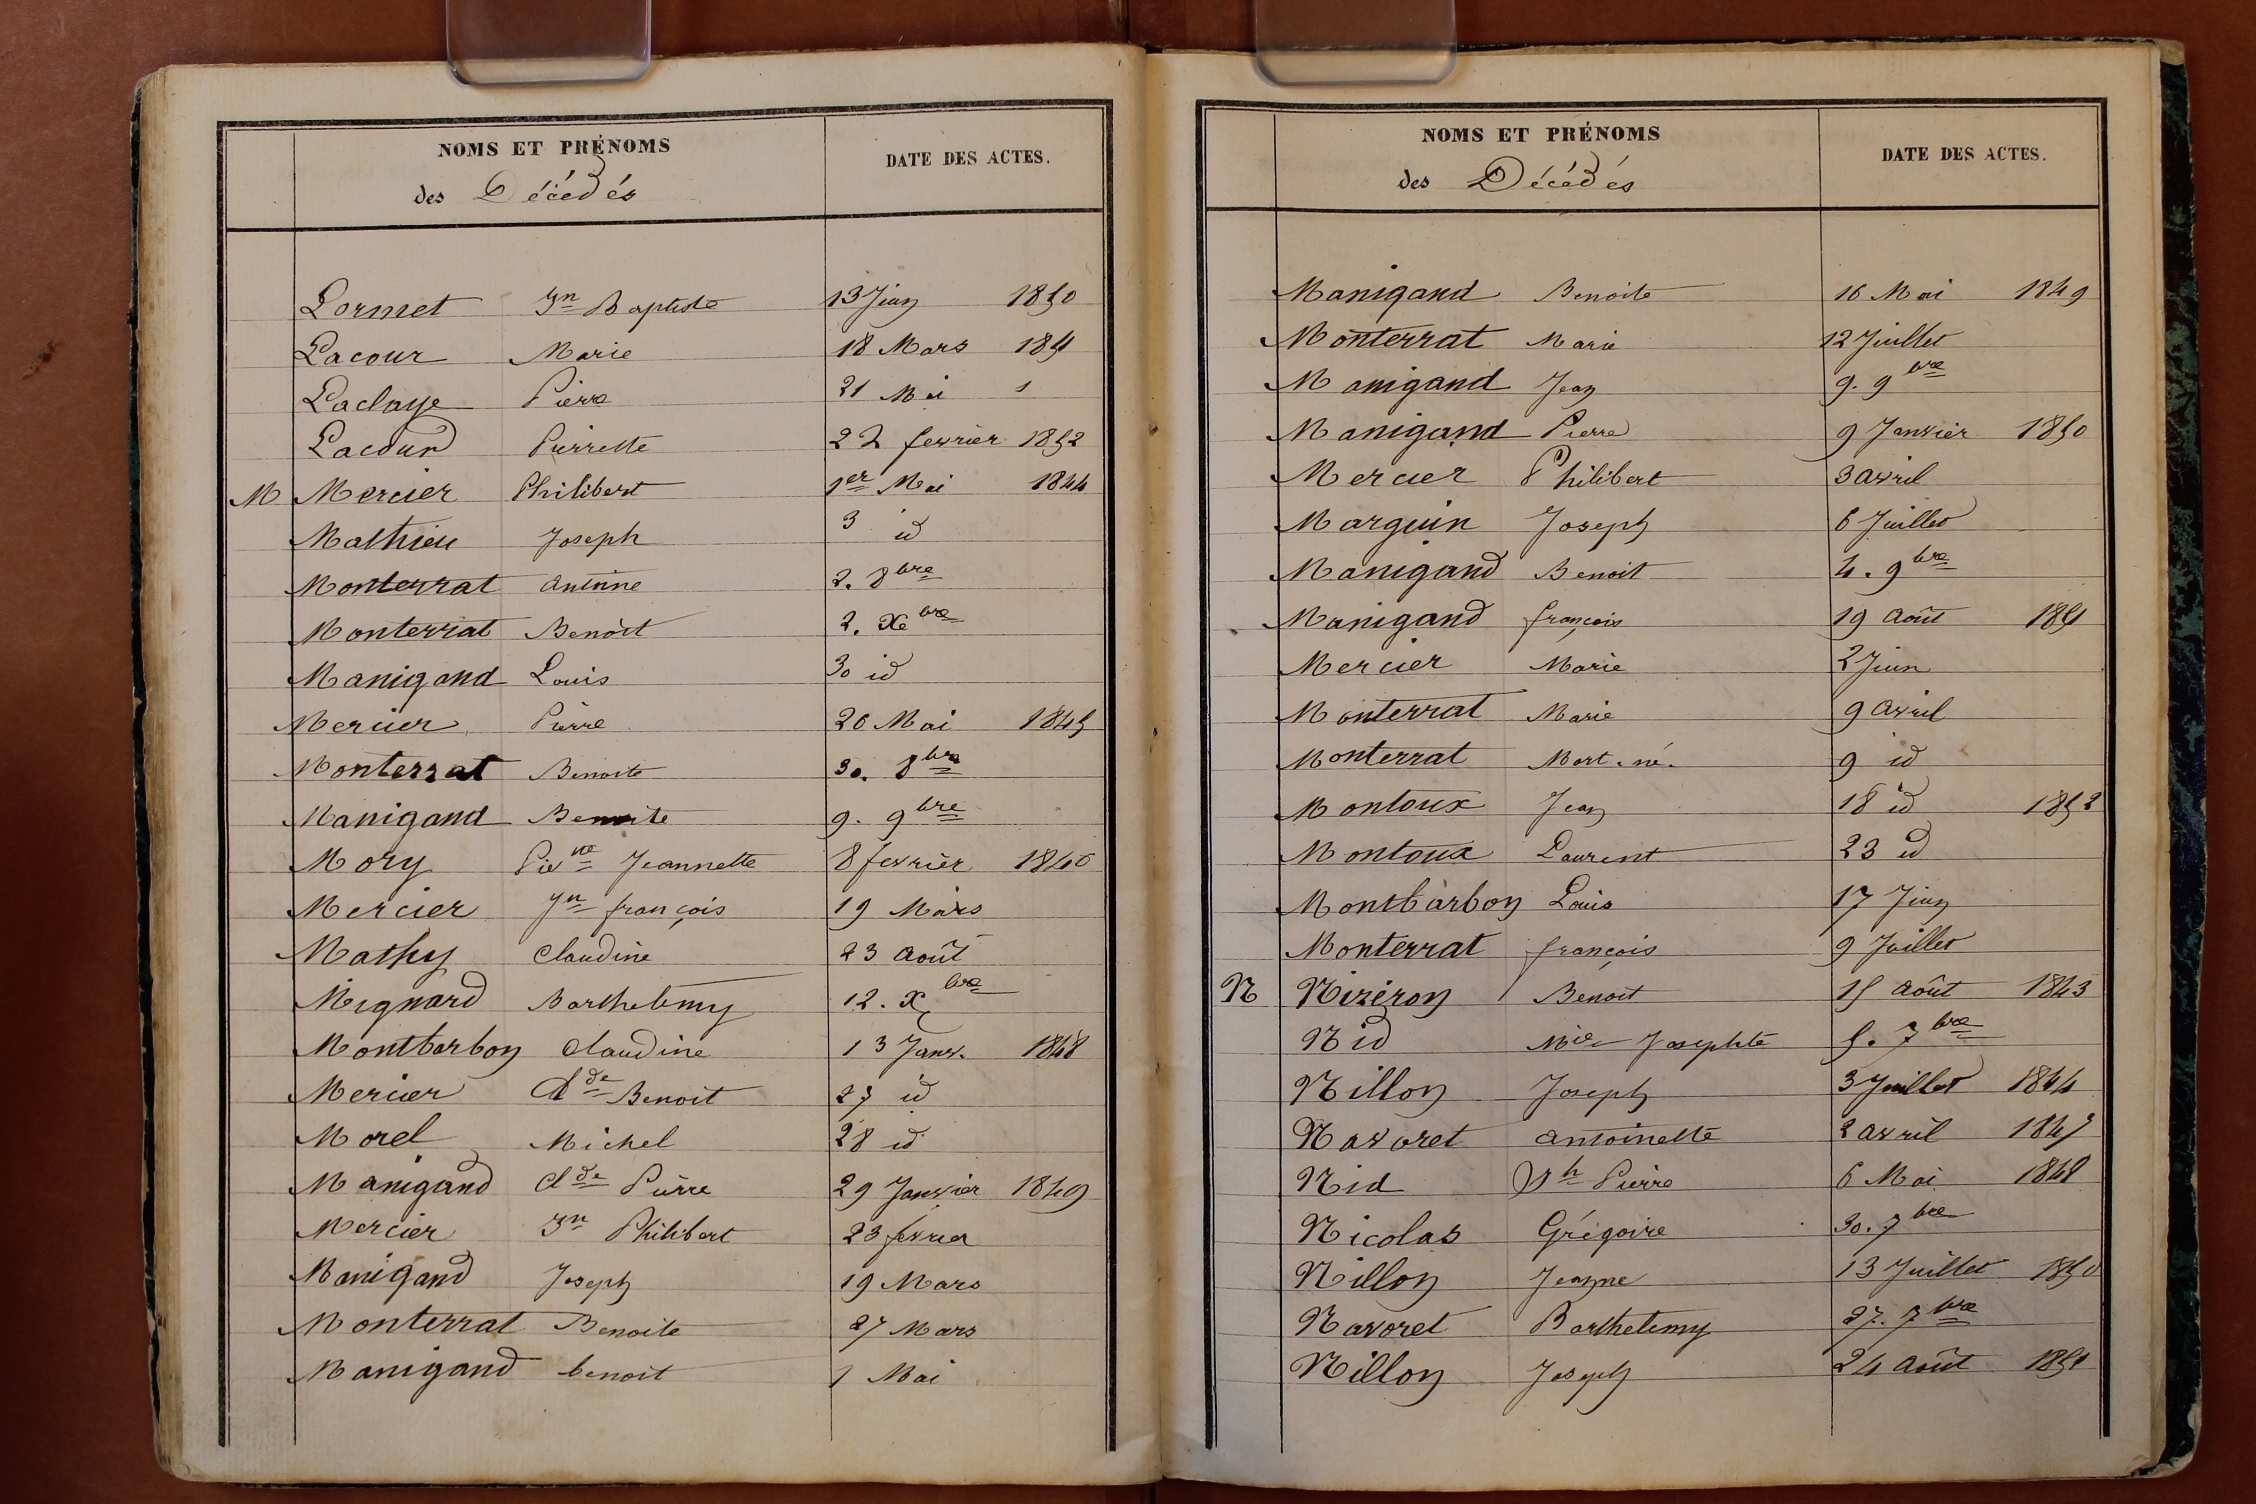 NOMS ET PRÉNOMS
des Décédés
DATE DES ACTES.
Lormet Jn Baptiste 13 Juin 1850
Lacour Marie 18 Mars 1851
Laclaye Pierre 21 Mai
Lacour Pierrette 22 fevrier 1852
M Mercier Philibert 1er Mai 1844
Mathieu Joseph 3 id
Monterrat antoine 2. 8bre
Monterrat Benoit 2. Xbre
Manigand Louis 30 id
Mercier Pierre 20 Mai 1845
Monterrat Benoite 30. 8bre
Manigand Benoite 9. 9bre
Mory Jeannette 8 fevrier 1846
Mercier Jn françois 19 Mars
Mathy Claudine 23 août
Mignard Barthelemy 12. Xbre
Montbarbon Claudine 13 Janv. 1848
Mercier Cl de Benoit 27 id
Morel Michel 28 id
Manigand Cl de Pierre 29 Janvier 1849
Mercier Jn Philibert 23 fevrier
Manigand Joseph 19 Mars
Monterrat Benoite 27 Mars
Manigand benoit 1 Mai
NOMS ET PRÉNOMS
des Décédés
DATE DES ACTES.
Manigand Benoite 16 Mai 1849
Monterrat Marie 12 Juillet
Manigand Jean 9. 9bre
Manigand Pierre 9 Janvier 1850
Mercier Philibert 3 avril
Marguin Joseph 6 Juillet
Manigand Benoit 4. 9bre
Manigand françois 19 août 1851
Mercier Marie 2 Juin
Monterrat Marie 9 avril
Monterrat Mort-né. 9 id
Montoux Jean 18 id 1852
Montoux Laurent 23 id
Montbarbon Louis 17 Juin
Monterrat françois 9 Juillet
N Nizéron Benoit 15 août 1843
Nid Mie Josephte 5. 7bre
Nillon Joseph 3 Juillet 1844
Navoret antoinette 2 avril 1847
Nid Jh Pierre 6 Mai 1848
Nicolas Grégoire 30. 7bre
Nillon Jeanne 13 Juillet 1850
Navoret Barthelemy 27. 7bre
Nillon Joseph 24 août 1851